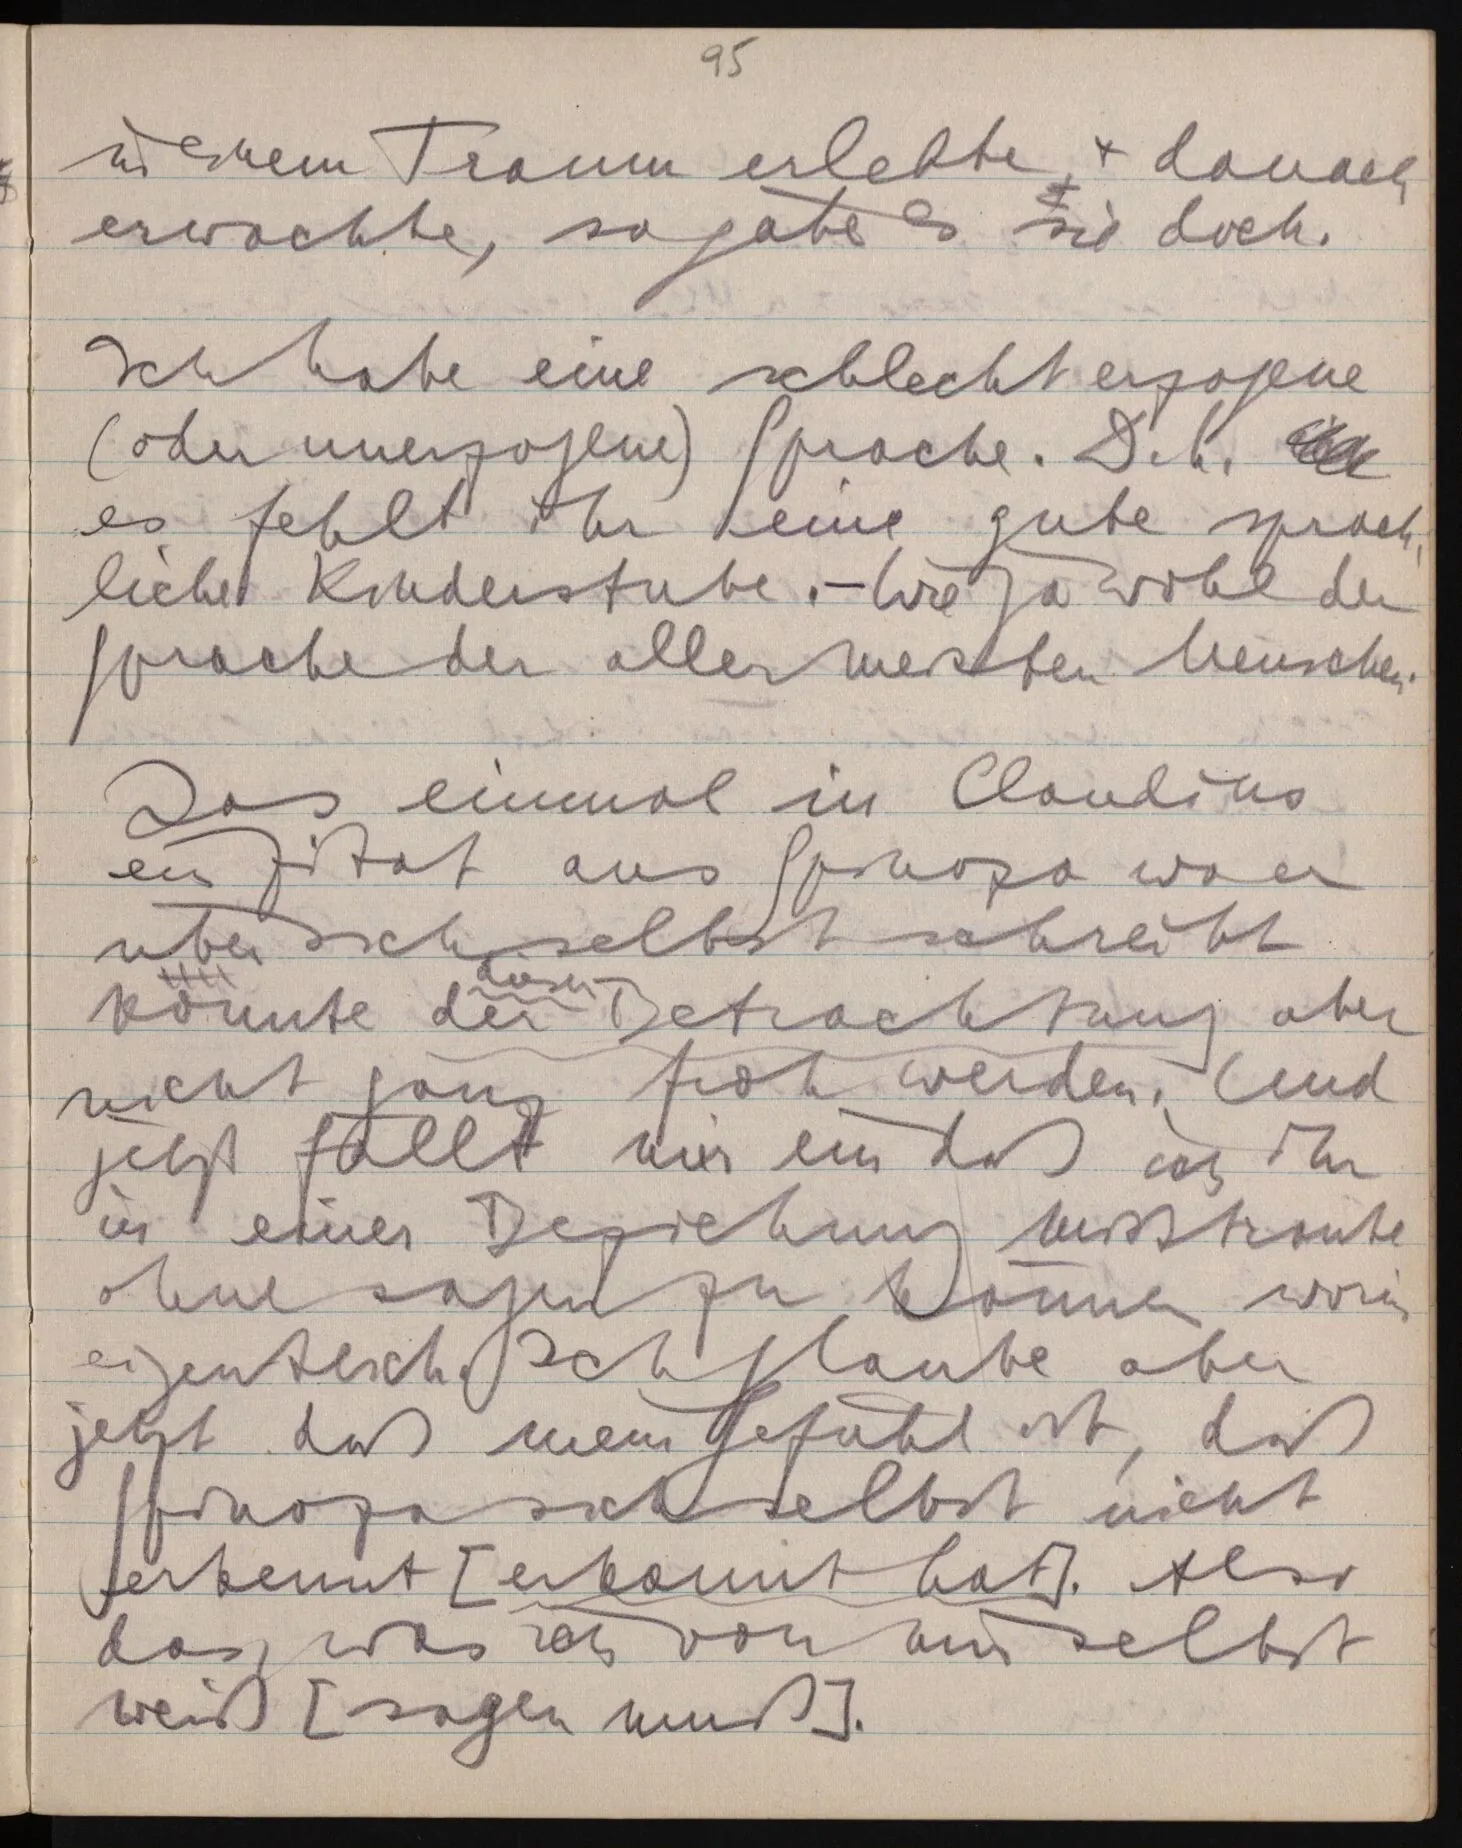 95
in einem Traum erlebte, + danach
erwachte, so gäbe es sie doch.
Ich habe eine schlecht erzogene
(oder unerzogene) Sprache. D.h.
es fehlt ihr eine gute sprach-
liche Kinderstube. – Wie ja wohl der
Sprache der allermeisten Menschen.
Las einmal in Claudius
ein Zitat aus Spinoza wo er
über sich selbst schreibt
konnte der dieser Betrachtung aber
nicht ganz froh werden. Und
jetzt fällt mir ein daß ich ihr
in einer Beziehung mißtraute
ohne sagen zu können worin
eigentlich. Ich glaube aber
jetzt daß mein Gefühl ist, daß
Spinoza sich selbst nicht
erkennt [erkannt hat]. Also
das, was ich von mir selbst
weiß [sagen muß].